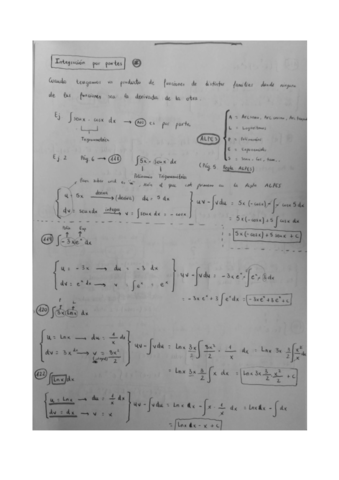 Integración por partes
Cuando tengamos un producto de funciones de distinta familia donde ninguna
de las funciones sea la derivada de la otra.
Ej ∫ senx · cosx dx → no es por partes
Trigonométrica
ALPES
A = Arcsenx, Arccosx, Arctanx
L = Logaritmos
P = Polinomios
E = Exponencial
S = Sen, Cos, Tan
Ej 2 Pág 6 → ∫ 5x · senx dx (Pág 5 Regla ALPES)
Polinomio Trigonométrica
u = 5x → (derivar) du = 5 dx
dv = senx dx → v = ∫ senx dx = -cosx
uv - ∫ v du = 5x (-cosx) - ∫ -cosx 5 dx
5x (-cosx) + 5 ∫ cosx dx
5x (-cosx) + 5 senx + c
∫ -3x e^x dx
u = -3x → du = -3 dx
dv = e^x dx → v = ∫ e^x = e^x
uv - ∫ v du = -3x e^x - ∫ e^x (-3) dx
= -3x e^x + 3 ∫ e^x dx = -3x e^x + 3 e^x + c
∫ 3x lnx dx
u = lnx → du = 1/x dx
uv - ∫ v du = lnx 3x²/2 - ∫ 3x²/2 · 1/x dx
∫ lnx dx
u = lnx → du = 1/x dx
dv = dx → v = x
uv - ∫ v du = lnx x - ∫ x · 1/x dx = lnx x - ∫ dx
= lnx x - x + c